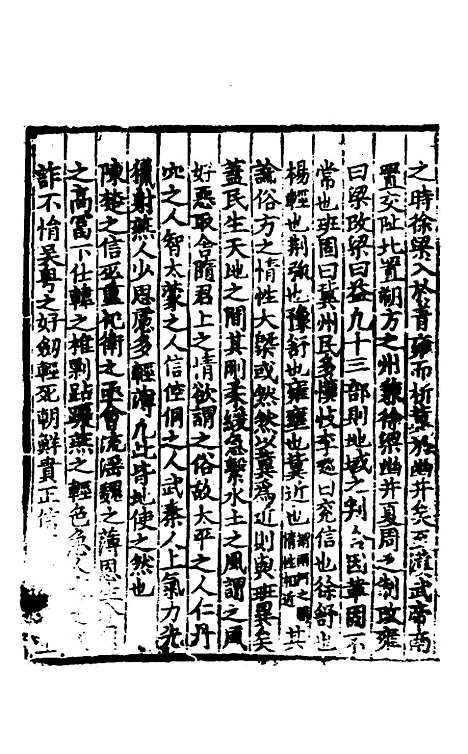 之時徐梁入於青雍而析冀於幽并矣至漢武帝南
置交阯北置朔方之州兼徐梁幽并夏周之制改雍
曰梁改梁曰益凡十三部則地域之判合因革固不
常也班固曰冀州民多懷忮李巡曰兗信也徐舒也
楊輕也荆強也豫舒也雍壅也冀近也謂兩河之間情性相近其
論俗方之情性大槩或然然以冀為近則與班異矣
蓋民生天地之間其剛柔緩急繫水土之風謂之風
好惡取舍隨君上之情欲謂之俗故太平之人仁丹
穴之人智太蒙之人信空侗之人武秦人上氣力先
獵射燕人少思慮多輕薄凡此皆地使之然也
陳楚之信巫重祀衛之亟會流淫魏之薄恩
之高富下仕韓之椎剽趙燕之輕色急人
詐不情吳粤之好劒輕死朝鮮貴正信